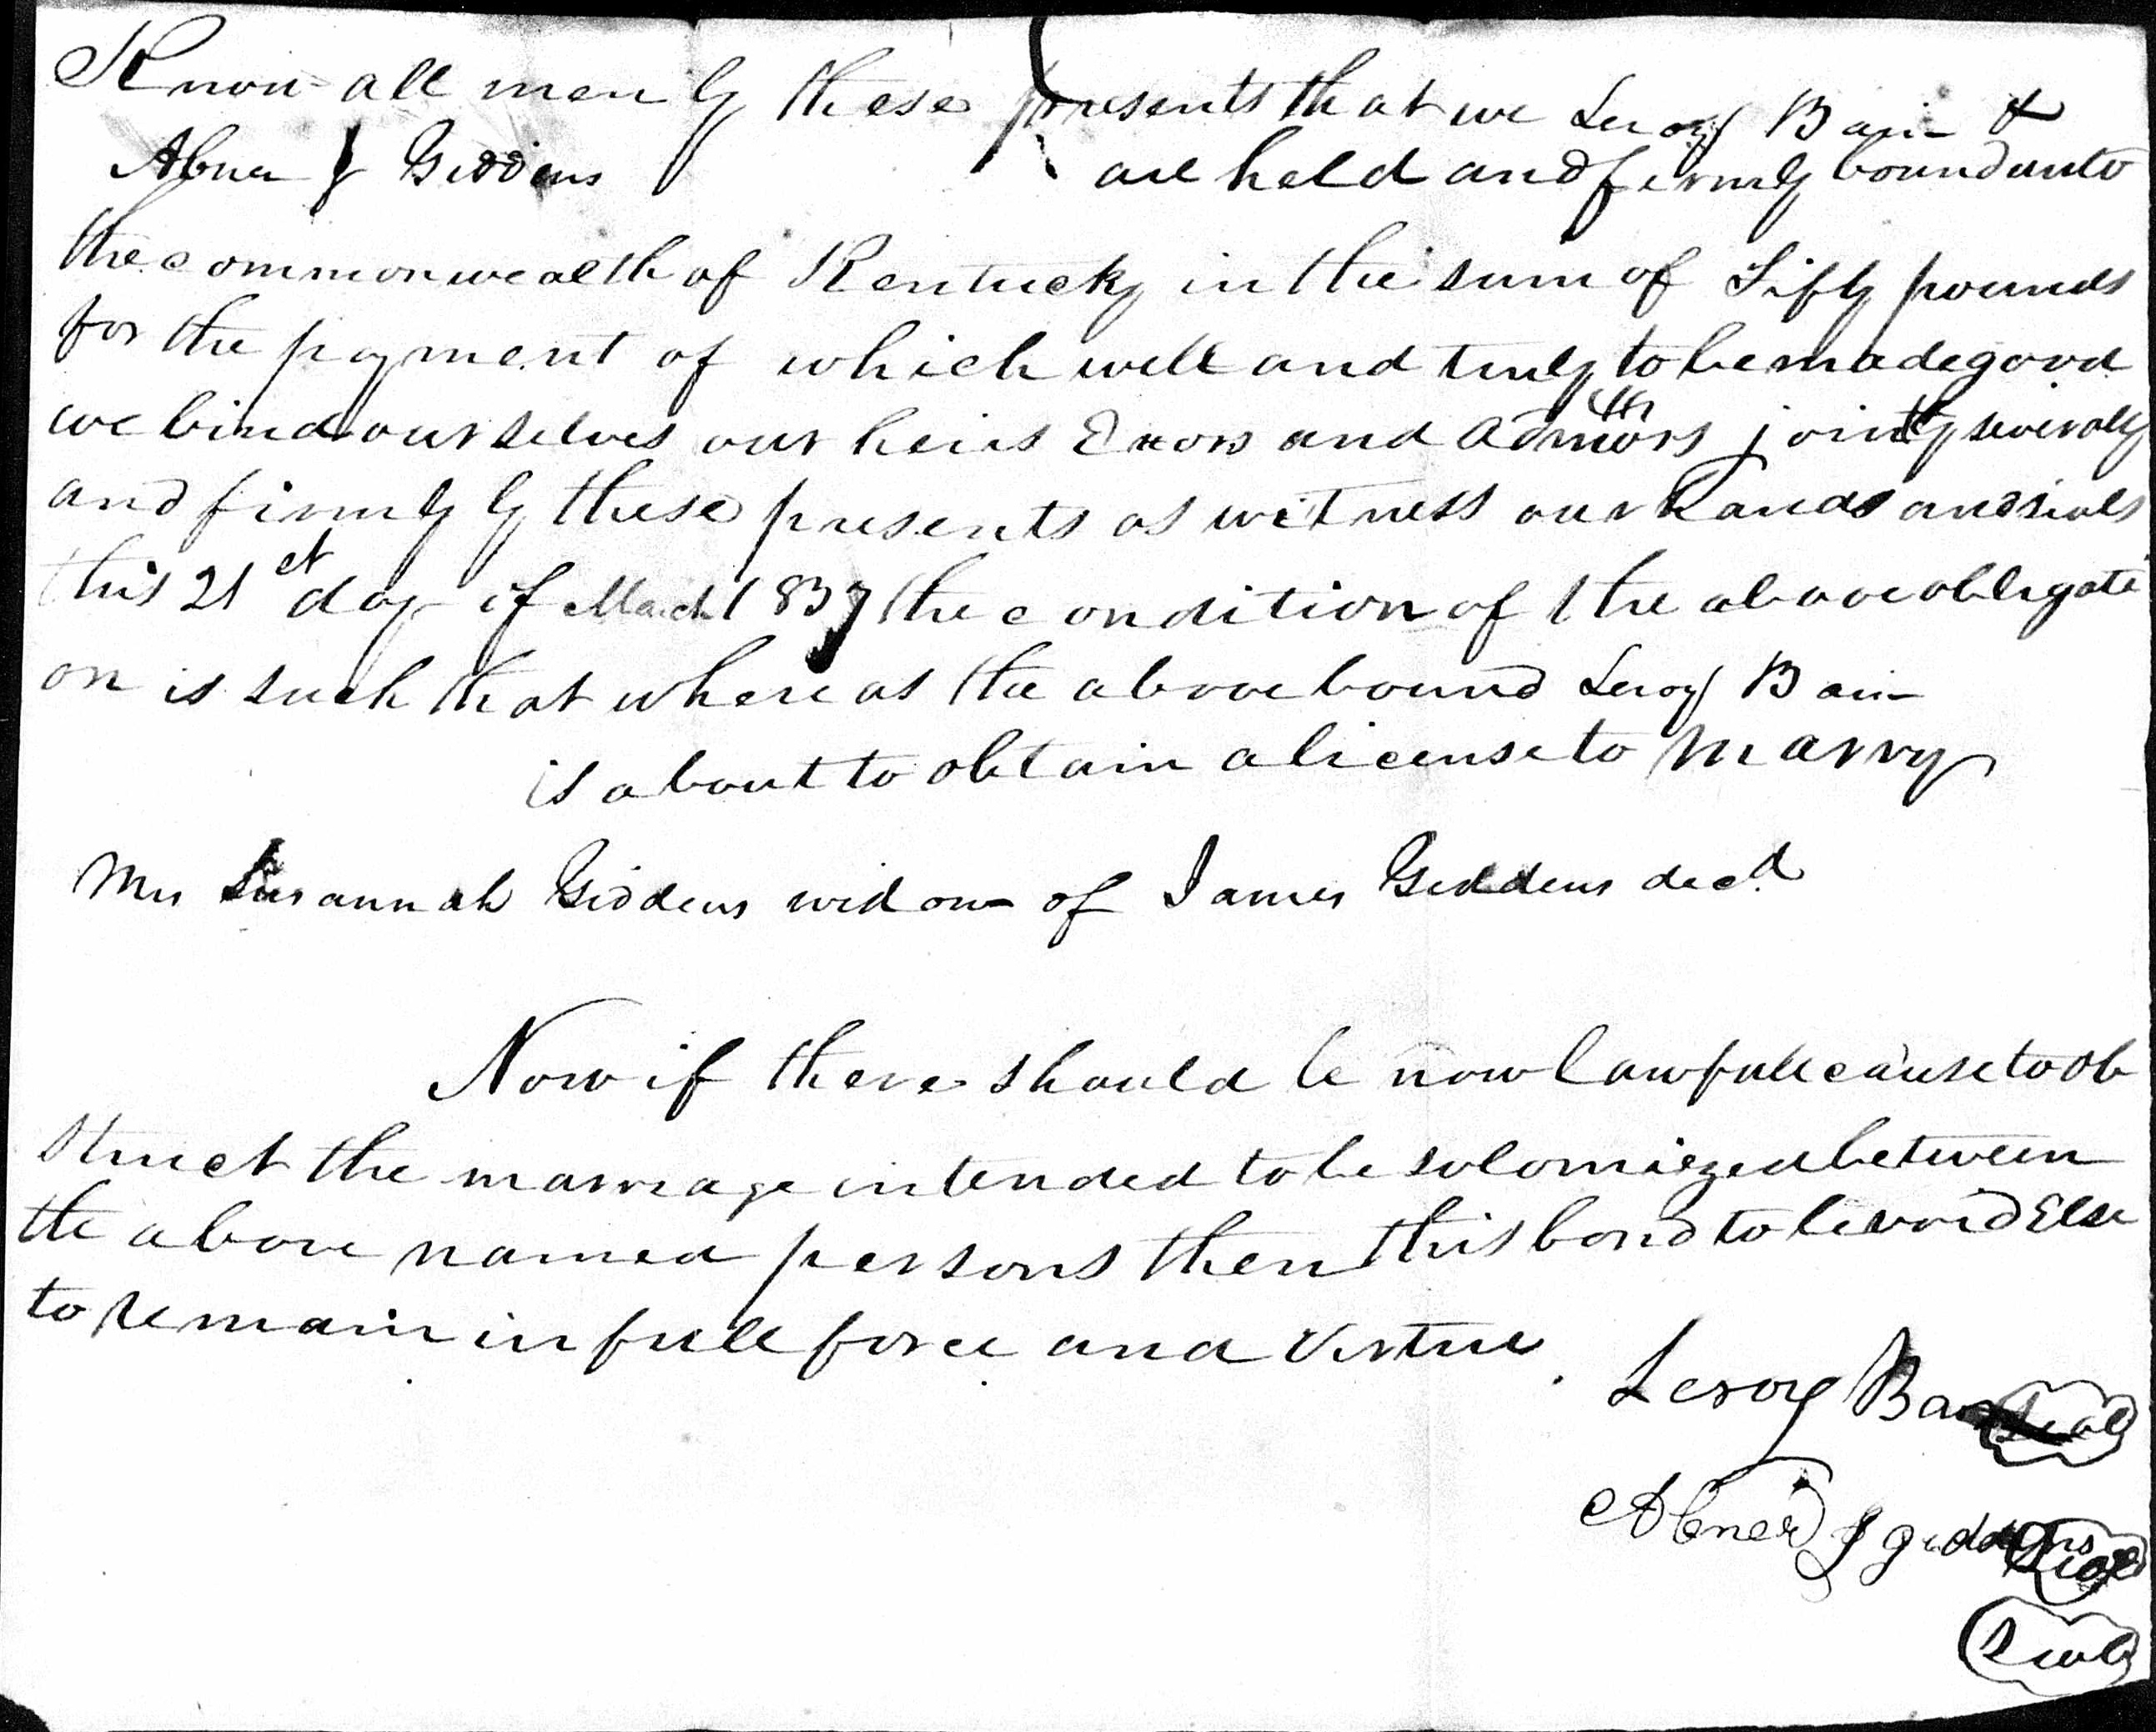 Know all men by these presents that we Leroy Bain &
Abner J Giddens are held and firmly bound unto
the commonwealth of Kentucky in the sum of Fifty pounds
for the payment of which well and truly to be made good
we bind ourselves our heirs Exors and Admors jointly severally
and firmly by these presents as witness our hands and seals
this 21st day of March 1837 the condition of the above obligati
on is such that where as the above bound Leroy Bain
is about to obtain a license to marry
Mrs Susannah Giddens widow of James Giddens decd
Now if there should be now lawfull cause to ob
struct the marriage intended to be solomized between
the above named persons then this bond to be void Else
to remain in full force and virtue
Leroy Bain Seal
Abner J giddens Seal
Seal